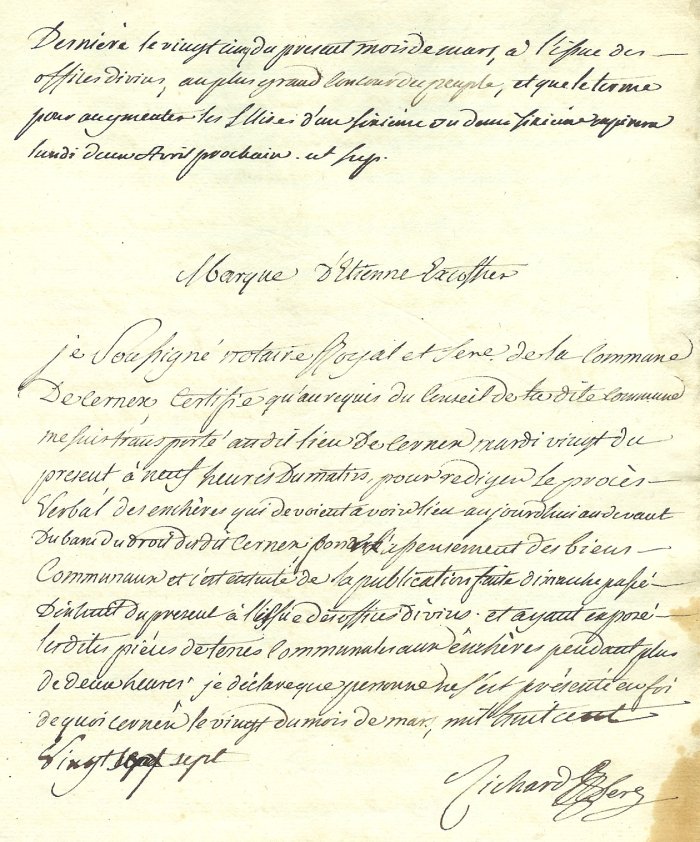 Dernière le vingt cinq du present mois de mars, à l'issue des
offices divins, au plus grand Concour du peuple, et que le terme
pour augmenter les Mises d'un sixieme ou demi sixieme expirera
lundi deux Avril prochain. et sup.
Marque d'Etienne Excoffier
je Soussigné notaire Royal et Secre. de la Commune
De Cernex Certifie qu'au requis du Conseil de la dite Commune
me suis transporté au dit lieu De Cernex mardi vingt du
present à neuf heures Du matin, pour rediger Le procès
Verbal des enchères qui devoient avoir lieu aujourdhui au devant
Du banc du droit du dit Cernex pour l'apensement des biens
Communaux et c'est ensuite de la publication faite dimanche passé
Dixhuit du present à l'issue des offices divins. et ayant exposé
lesdites pièces de terres Communales aux enchères pendant plus
de deux heures, je déclare que personne ne s'est présenté en foi
de quoi cernex le vingt du mois de mars, mil huit cent
Vingt sept sept
Richard Secre